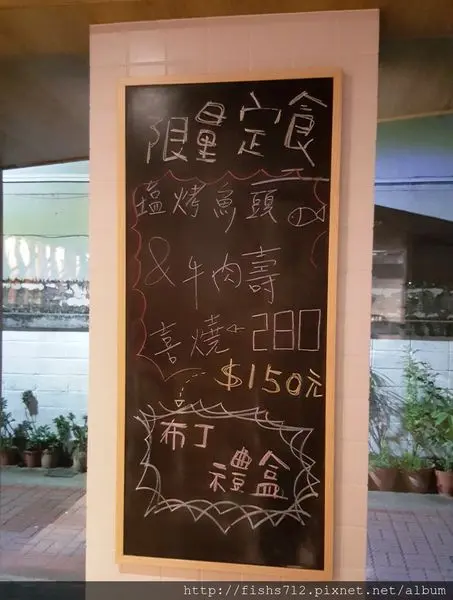 限量定食
塩烤魚頭
& 牛肉壽
喜燒 280
$150元
布丁
禮盒
http://fishs712.pixnet.net/album